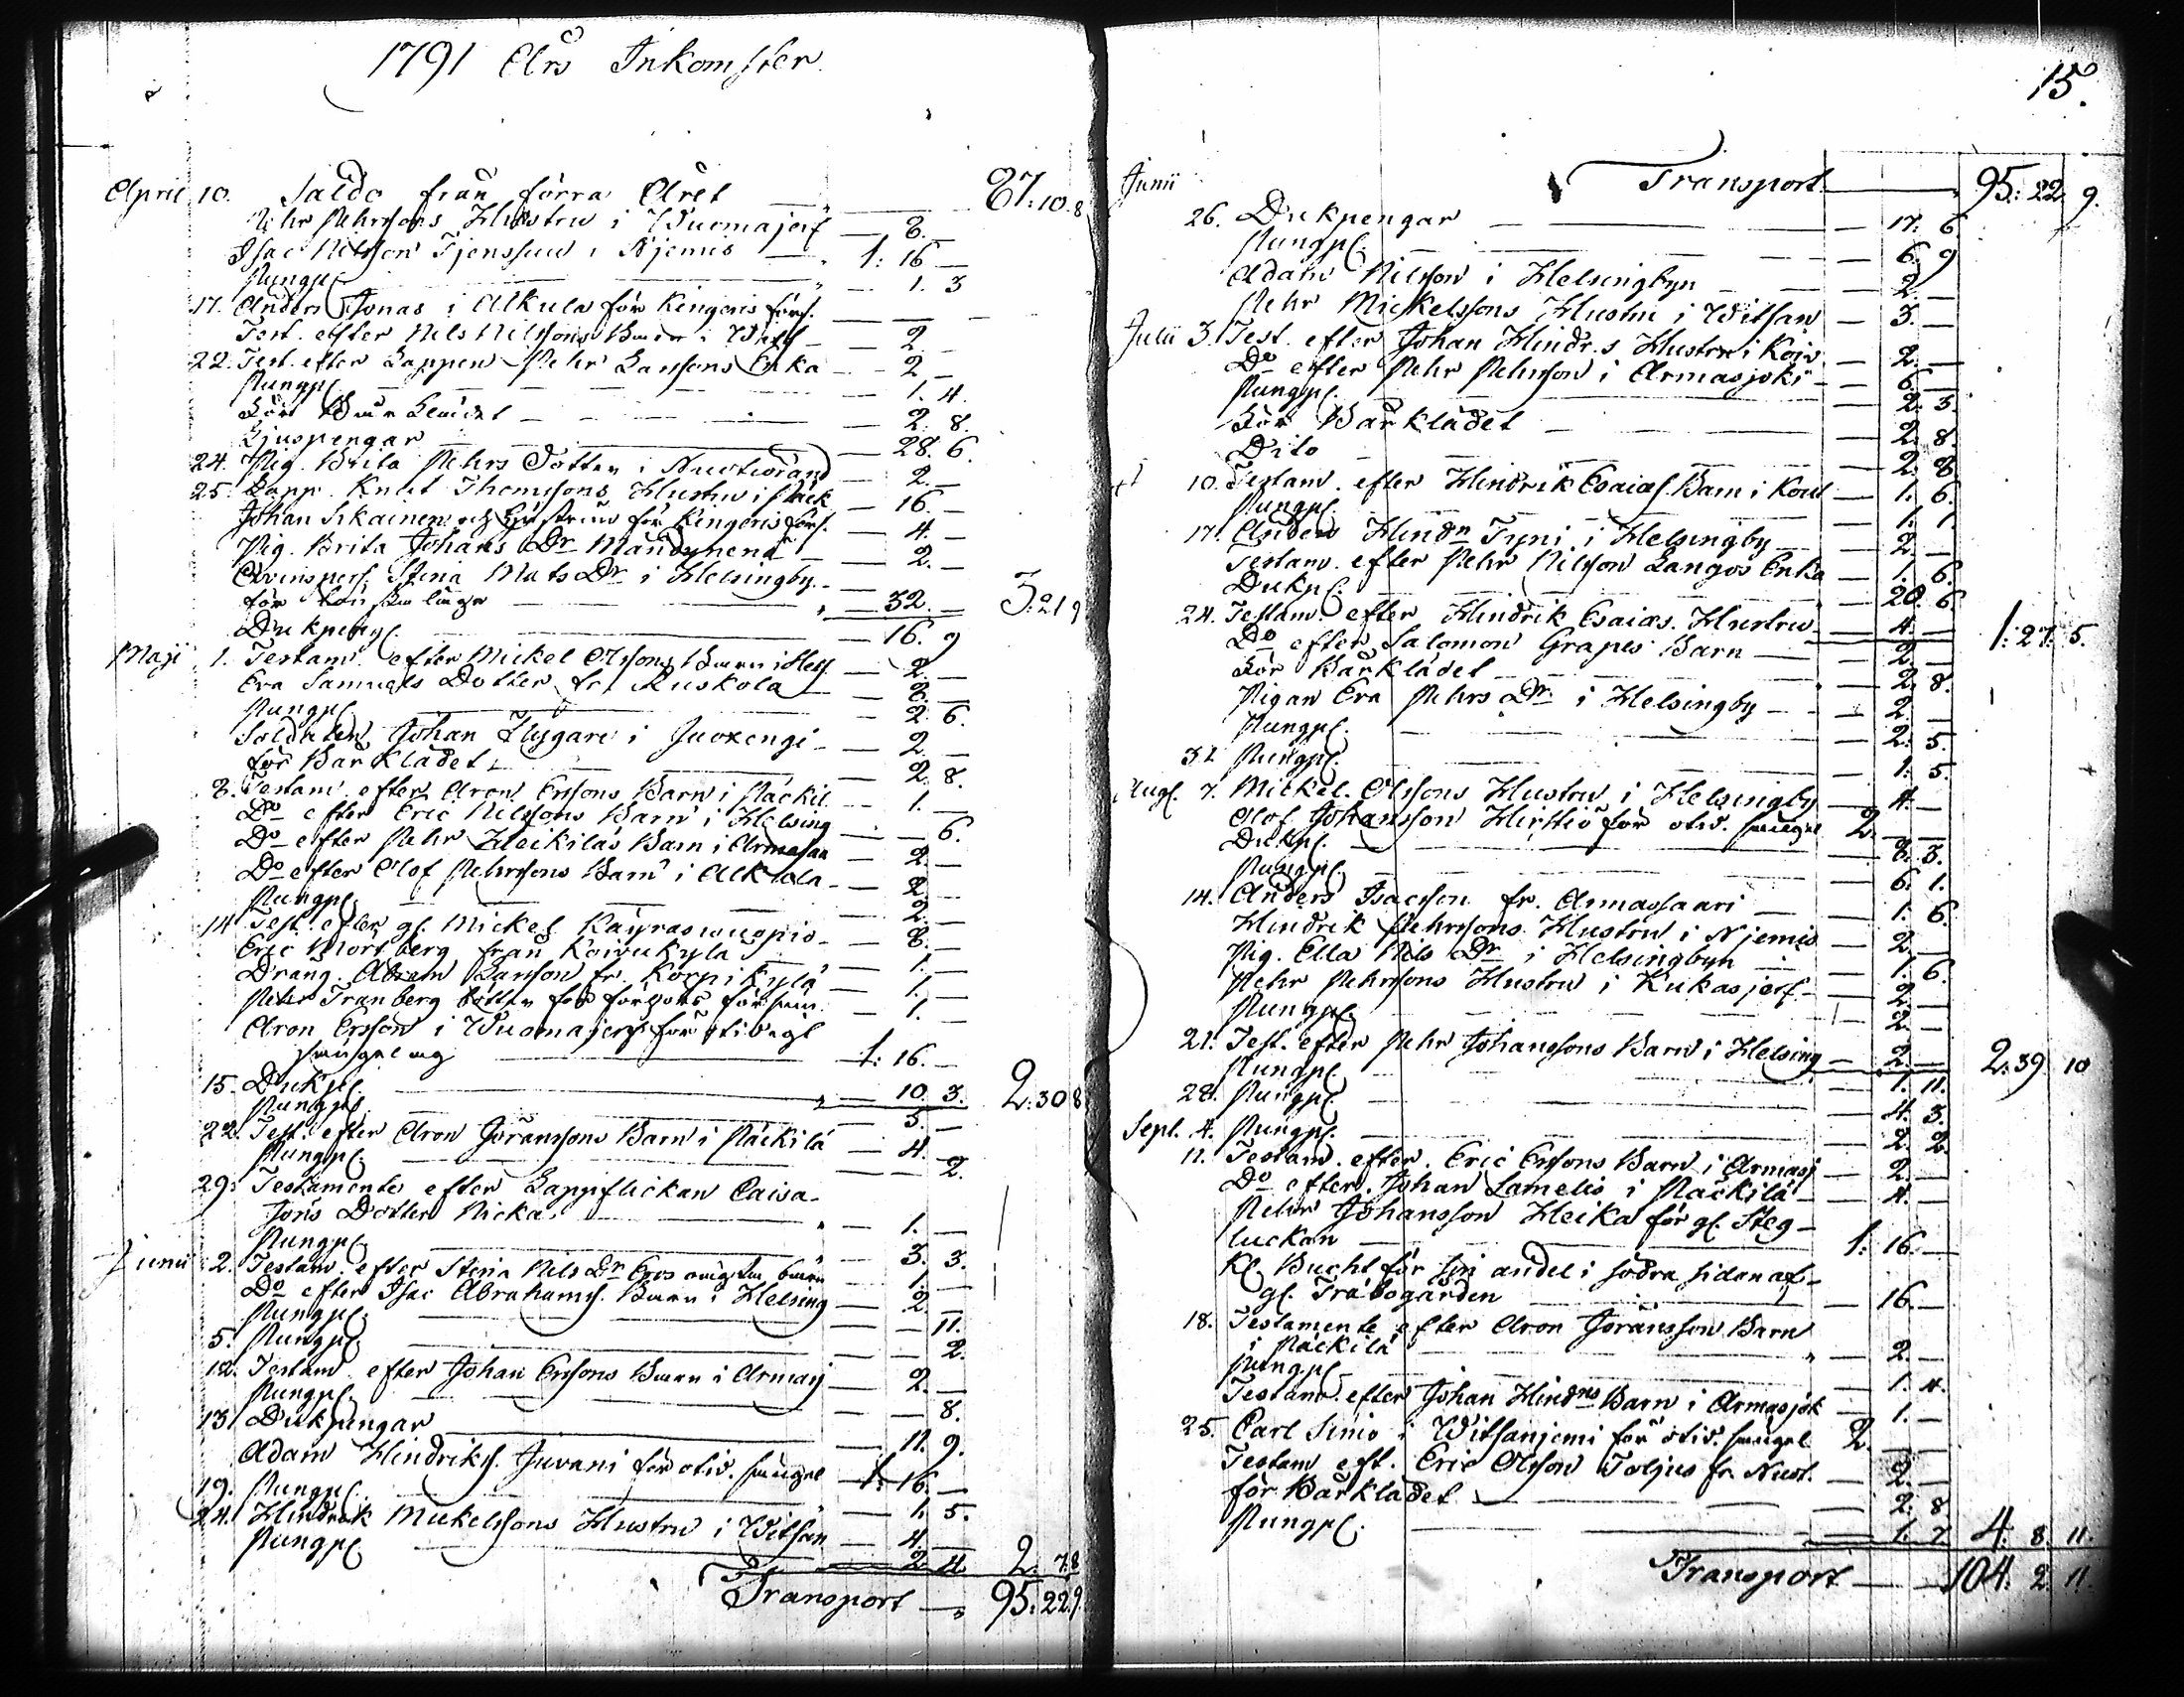 1791 Års Inkomster
April 10. Saldo från förra Året 87: 10. 8
Pehr Pehrssons Hustru i Wuomajerf 8. —
Isac Nilsson Tjenssuu i Njemis 1: 16 —
Pungp. 1. 3
17. Anders Jonas i Alkula för Kengeris förs.
Test. efter Nils Nilssons Barn i Wits 2. —
22. Test. efter Lappen Pehr Larssons Enka 2 —
Pungp. 1. 4.
för Barkladet 2. 8.
Ljuspengar 28. 6.
24. Pig. Brita Pehrs Dotter i 2. —
25. Lapp. Knut Thomssons Hustru i Päck 16. —
Johan Sikainen och Hustrun för Kengeris förs. 4. —
Pig. Brita Johans Dr. 2. —
Qvinspers. Stina Mats Dr i Helsingby
för 32. — 3: 21 9
Dukpeng. 16. 9
Maji 1. Testam. efter Mickel Olssons Barn i Hels 2. —
Eva Samuels Dotter fr. Ruskola 8. —
Pungp. 2. 6.
Soldaten Johan Flygare i Juoxengi 2. —
för Barkladet 2. 8.
8. Testam. efter Aron Erssons Barn i Päckil. 1. —
Do efter Eric Nilssons Barn i Helsing — 6.
Do efter Pehr Heikilas Barn i Armasaa 2. —
Do efter Olof Pehrssons Barn i Alkula 2 —
Pungp. 2. —
14 Test. efter gl. Mickel 8. —
Eric Mortberg från Koivukyla 1. —
Dräng. Abram Larsson fr. Korpikylä 1. —
Pehr Tranberg böter för försum. 1. —
Aron Ersson i Wuomajerf för otidigt
1: 16. —
15. Dukp. 10. 3. 2: 30 8
Pungp. 3. —
22. Test. efter Aron Joranssons Barn i Päckilä 4. —
Pungp. — 2.
29. Testamente efter Lappflickan Caisa
Joris Dotter Nicka 1. —
Pungp. 3. 3.
Junii 2. Testam. efter Stina Nils Dr barn 1. —
Do efter Isac Abrahams. Barn i Helsing 2. —
Pungp. — 11.
5. Pungp. — 2.
12. Testam efter Johan Erssons Barn i Armasj 2. —
Pungp. — 8.
13 Dukpengar 11. 9.
Adam Hindriks. Juvani för otid. 1: 16. —
19. Pungp. 1. 5.
24. Hindrik Mickelssons Hustru i Witsan 4. —
Pungp. 2. 4. 2: 7. 8
Transport 95: 22 9.
15.
Junii Transport 95: 22. 9.
26. Dukpengar 17. 6.
Pungp. 6. 9
Adam Nilsson i Helsingbyn 2. —
Pehr Mickelssons Hustru i Witsan 3. —
Julii 3. Test. efter Johan Hindr.s Hustru i Koiv 2. —
Do efter Pehr Pehrsson i Armasjoki 6. —
Pungp. 2. 3.
för Barkladet 2. 8.
Dito 2. 8
10. Testam. efter Hindrik Esaias. Barn i Koul 1. 6.
Pungp. 1. 1.
17. Anders Hindn Tyni i Helsingby 2. —
Testam. efter Pehr Nilsson Langos Enka 1. 6.
Dukp. 20. 6.
24. Testam. efter Hindrik Esaias. Hustru 4. — 1: 27. 5.
Do efter Salomon Grapes Barn 2. —
för Barkladet 2. 8.
Pigan Eva Pehrs Dr i Helsingby 2. —
Pungp. 2. 5.
31 Pungp. 1. 5.
Aug. 7. Mickel Olssons Hustru i Helsingby 4. —
Olof Johansson för otid. 2. — —
Dukp. 8. 3.
Pungp. 6. 1.
14. Anders Isacsson fr. Armassaari 1. 6.
Hindrik Pehrssons Hustru i Njemis 2. —
Pig. Ella Nils Dr i Helsingbyn 1. 6.
Pehr Pehrssons Hustru i Kukasjerf 2. —
Pungp. 2. —
21. Test. efter Pehr Johanssons Barn i Helsing 2. — 2: 39. 10
Pungp. 1. 11.
28. Pungp. 4. 3.
Sept. 4. Pungp. 2. 2.
11. Testam. efter Eric Erssons Barn i Armasj 2. —
Do efter Johan Lamelis i Päckilä 4. —
Pehr Johansson Heika för gl. Steg-
luckan 1: 16. —
Kl. Bucht för sin andel i södra sidan af
gl. Träbogården 16. —
18. Testamente efter Aron Joransson Barn
i Päckilä 2. —
Pungp. 1. 4.
Testam. efter Johan Hindns Barn i Armasjok 1. —
25. Carl Simo i Witsanjemi för otid. 2. — —
Testam eft. Eric Olsson Toljus fr. Nust. 2. —
för Barkladet 2. 8
Pungp. 1. 7. 4: 8. 11.
Transport 104. 2. 11.